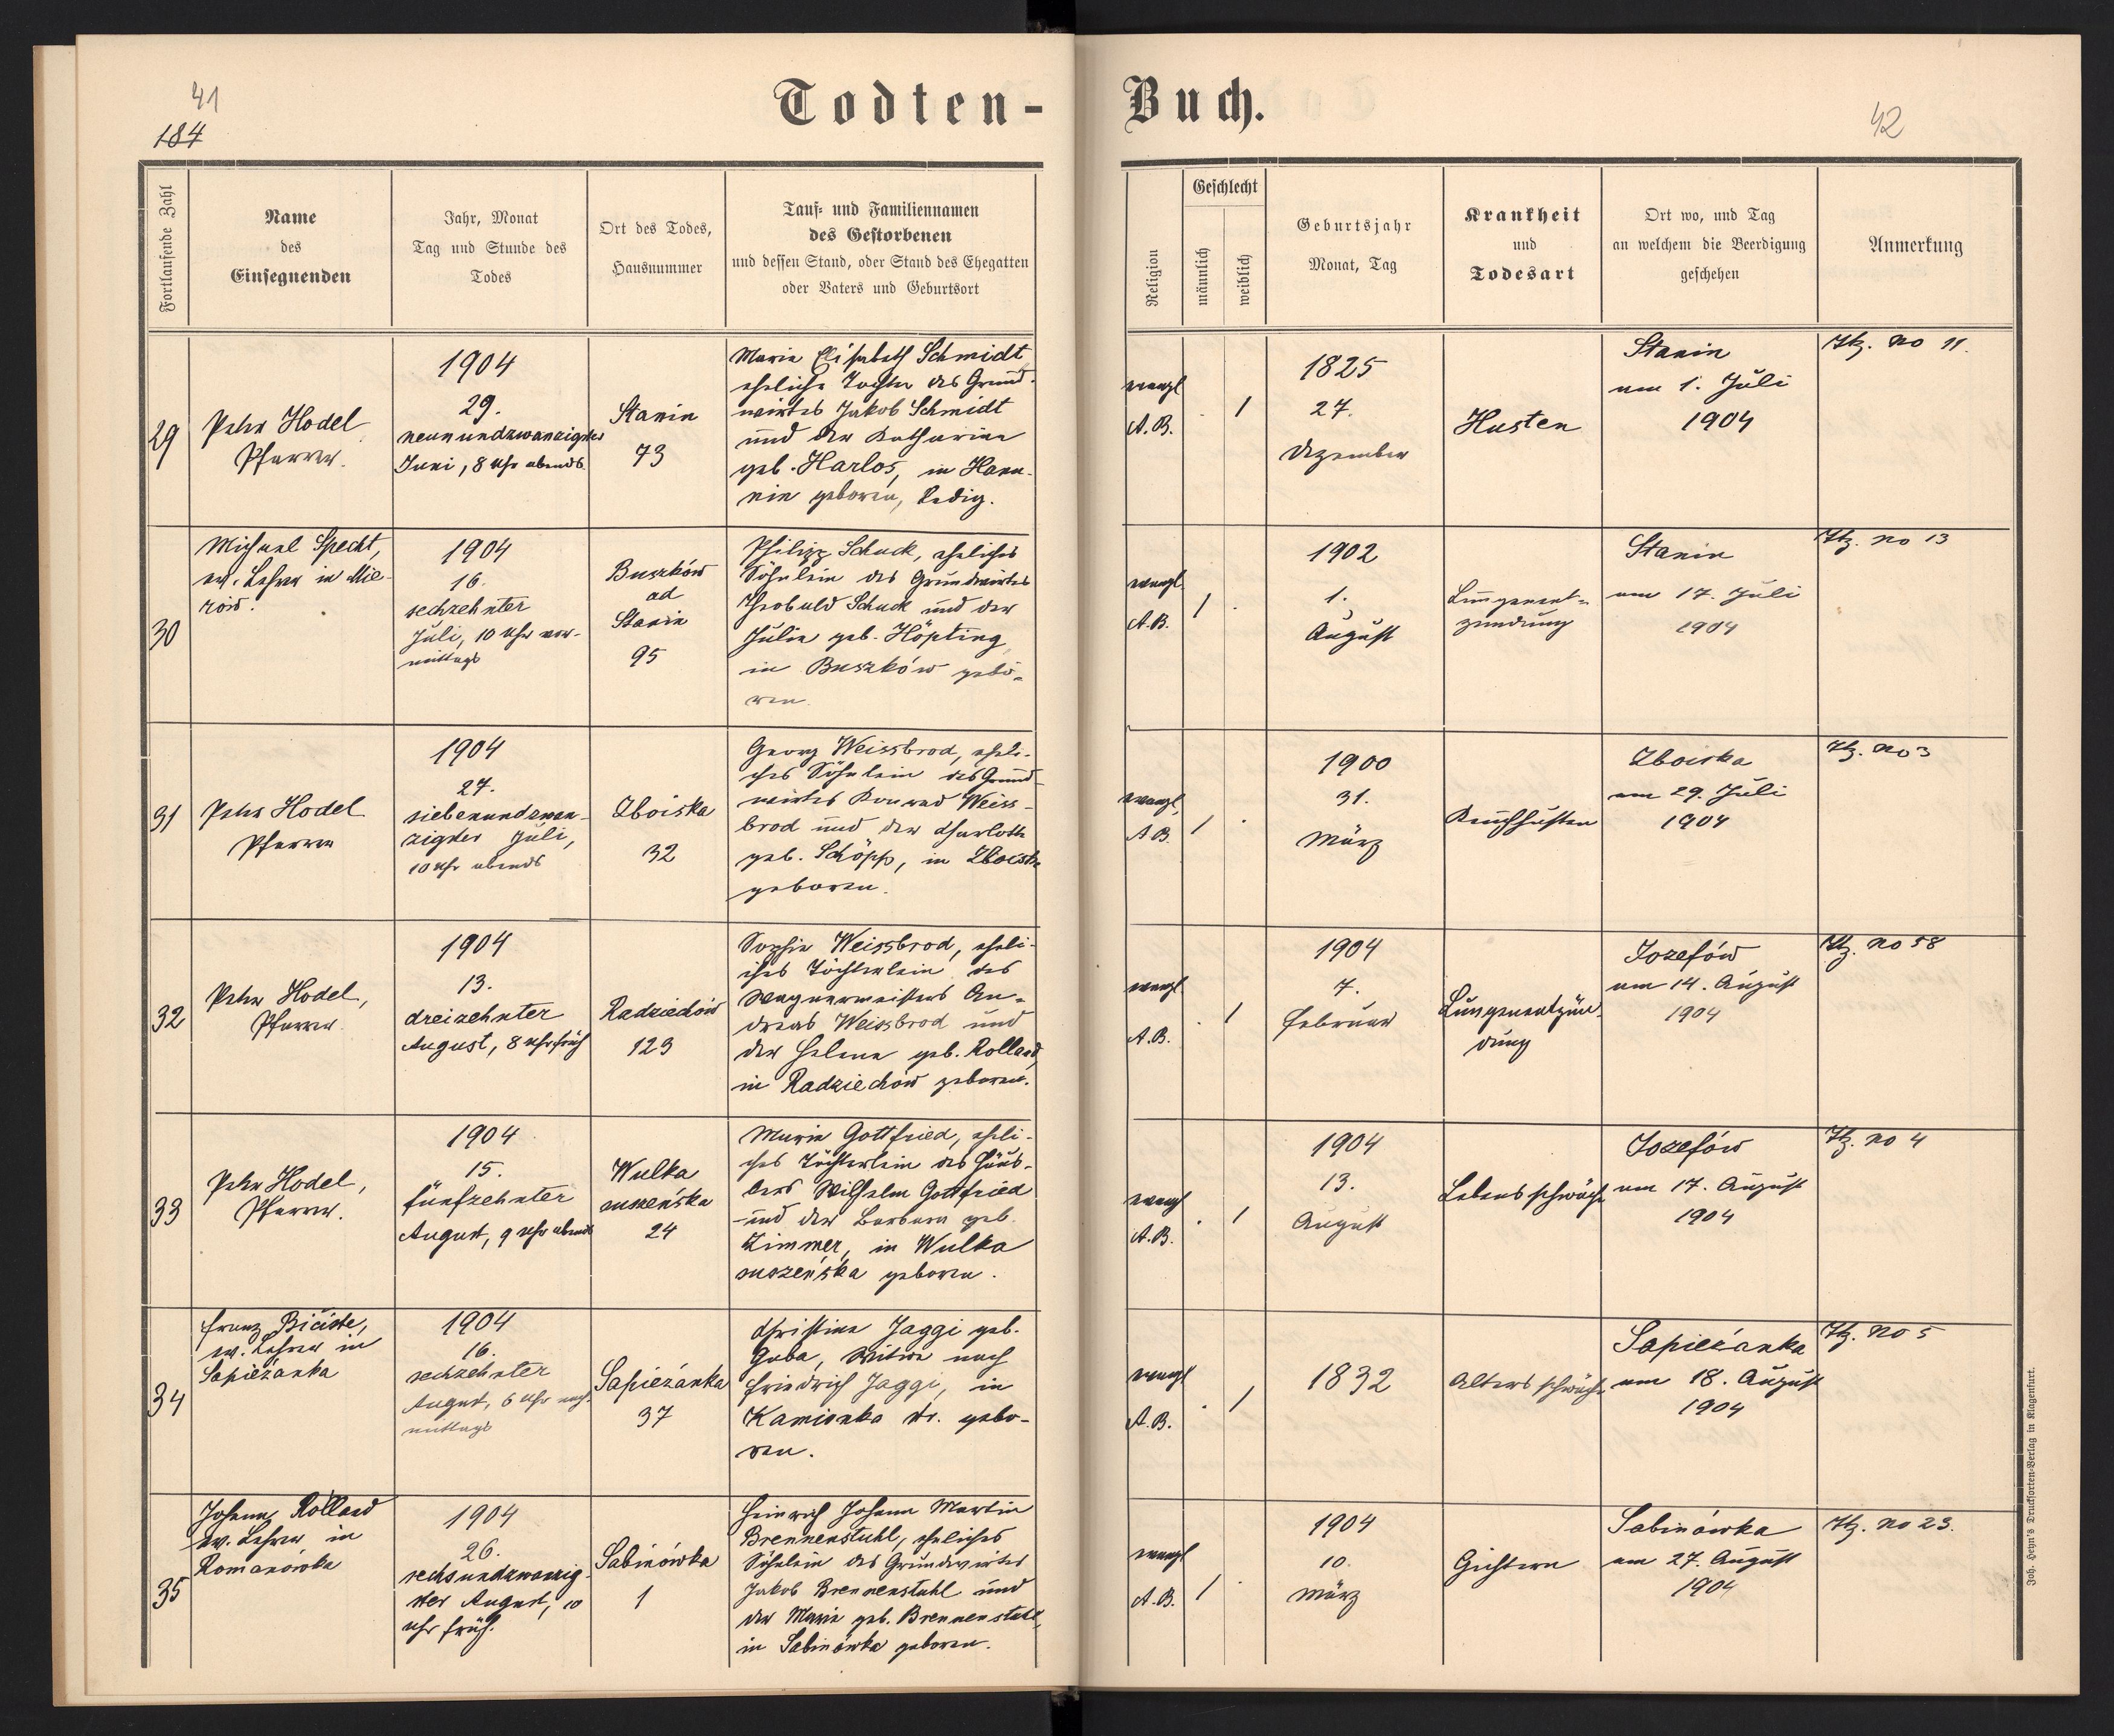 41
184
Todten-
Buch.
42
Fortlaufende Zahl
Name
des
Einsegnenden
Jahr, Monat
Tag und Stunde des
Todes
Ort des Todes,
Hausnummer
Tauf- und Familiennamen
des Gestorbenen
und dessen Stand, oder Stand des Ehegatten
oder Vaters und Geburtsort
Religion
Geschlecht
männlich
weiblich
Geburtsjahr
Monat, Tag
Krankheit
und
Todesart
Ort wo, und Tag
an welchem die Beerdigung
geschehen
Anmerkung
29
Peter Hodel
Pfarrer.
1904
29.
neunundzwanzigster
Juni, 8 Uhr abends.
Stanin
73
Maria Elisabeth Schmidt
eheliche Tochter des Grund-
wirtes Jakob Schmidt
und der Katharina
geb. Harlos, in Hanu-
nin geboren, ledig.
evangl
A.B.
. 1
1825
27.
Dezember
Husten
Stanin
am 1. Juli
1904
Itz. No 11.
30
Michael Specht,
ev. Lehrer in Mie-
rów.
1904
16.
sechzehnter
Juli, 10 Uhr vor-
mittags
Buszków
ad
Stanin
95
Philipp Schuck, eheliches
Söhnlein des Grundwirtes
Theobald Schuck und der
Julia geb. Höpting,
in Buszków gebo-
ren.
evangl
A.B.
1 .
1902
1.
August
Lungenent-
zündung
Stanin
am 17. Juli
1904
Itz. No 13
31
Peter Hodel
Pfarrer
1904
27.
siebenundzwan-
zigster Juli,
10 Uhr abends
Zboiska
32
Georg Weissbrod, eheli-
ches Söhnlein des Grund-
wirtes Konrad Weiss-
brod und der Charlotte
geb. Schöpp, in Zboiska
geboren.
evangl.
A.B.
1 .
1900
31.
März
Keuchhusten
Zboiska
am 29. Juli
1904
Itz. No 3
32
Peter Hodel,
Pfarrer.
1904
13.
dreizehnter
August, 8 Uhr früh
Radziechów
123
Sophie Weissbrod, eheli-
ches Töchterlein des
Wagnermeisters An-
dreas Weissbrod und
der Helena geb. Rolland,
in Radziechów geboren.
evangl
A.B.
. 1
1904
7.
Februar
Lungenentzün-
dung
Jozefów
am 14. August
1904
Itz. No 58
33
Peter Hodel,
Pfarrer.
1904
15.
fünfzehnter
August, 9 Uhr abends
Wulka
suszeńska
24
Maria Gottfried, eheli-
ches Töchterlein des Häus-
lers Wilhelm Gottfried
und der Barbara geb.
Zimmer, in Wulka
suszeńska geboren.
evangl
A.B.
. 1
1904
13.
August
Lebensschwäche
Jozefów
am 17. August
1904
Itz. No 4
34
Franz
ev. Lehrer in
Sapieżanka
1904
16.
sechzehnter
August, 6 Uhr nach-
mittags
Sapieżanka
37
Christina Jaggi geb.
Guba, Witwe nach
Friedrich Jaggi, in
Kamionka str. gebo-
ren.
evangl
A.B.
. 1
1832
Altersschwäche
Sapieżanka
am 18. August
1904
Itz. No 5
35
Johann Rolland
ev. Lehrer in
Romanówka
1904
26.
sechsundzwanzig-
ster August, 10
Uhr früh.
Sabinówka
1
Heinrich Johann Martin
Brennenstuhl, eheliches
Söhnlein des Grundwirtes
Jakob Brennenstuhl und
der Maria geb. Brennenstuhl,
in Sabinówka geboren.
evangl
A.B.
1 .
1904
10.
März
Gichtern
Sabinówka
am 27. August
1904
Itz. No 23.
Joh. Heyn's Drucksorten-Verlag in Klagenfurt.